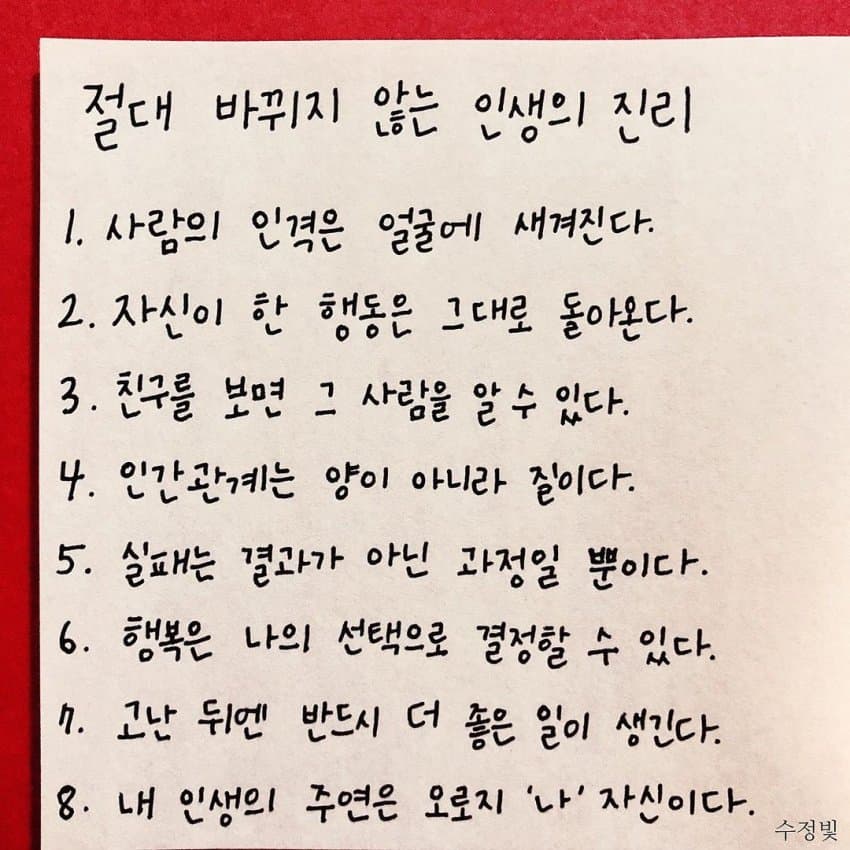 절대 바뀌지 않는 인생의 진리
1. 사람의 인격은 얼굴에 새겨진다.
2. 자신이 한 행동은 그대로 돌아온다.
3. 친구를 보면 그 사람을 알 수 있다.
4. 인간관계는 양이 아니라 질이다.
5. 실패는 결과가 아닌 과정일 뿐이다.
6. 행복은 나의 선택으로 결정할 수 있다.
7. 고난 뒤엔 반드시 더 좋은 일이 생긴다.
8. 내 인생의 주연은 오로지 '나' 자신이다.
수정빛